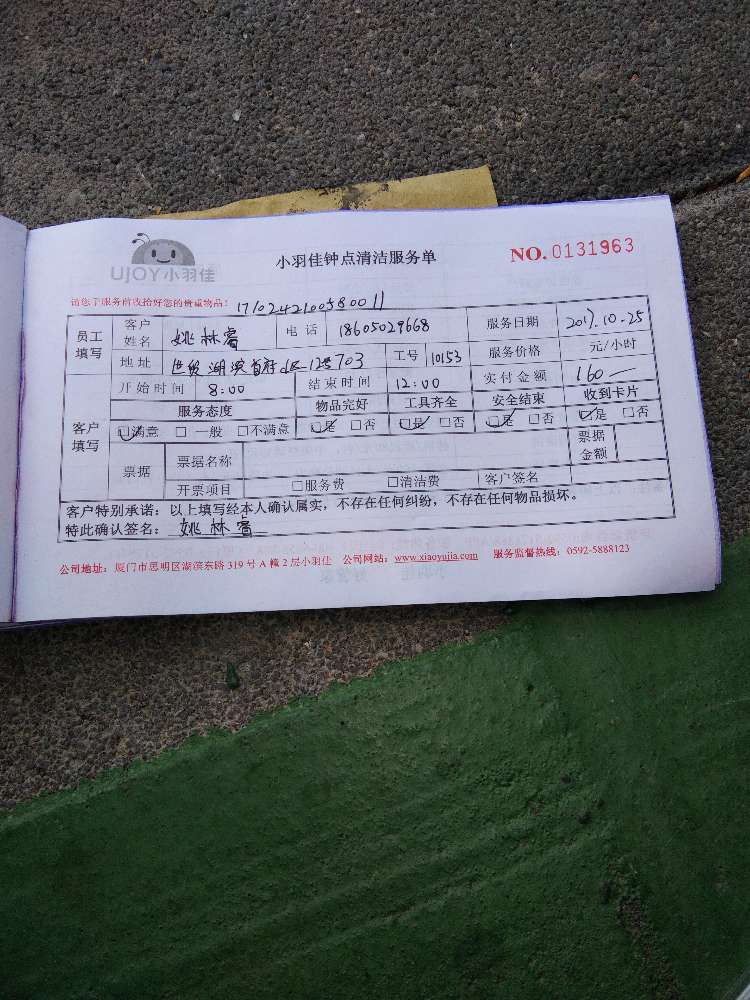 UJOY小羽佳
小羽佳钟点清洁服务单
NO.0131963
请您于服务前收拾好您的贵重物品! 1710242100580011
员工填写 客户姓名 姚林睿 电话 18605029668 服务日期 2017.10.25
地址 湖滨首府 125703 工号 10153 服务价格 元/小时
客户填写 开始时间 8:00 结束时间 12:00 实付金额 160—
服务态度 物品完好 工具齐全 安全结束 收到卡片
☑满意 □一般 □不满意 ☑是 □否 ☑是 □否 ☑是 □否 ☑是 □否
票据 票据名称 票据金额
开票项目 □服务费 □清洁费 客户签名
客户特别承诺:以上填写经本人确认属实,不存在任何纠纷,不存在任何物品损坏。
特此确认签名: 姚林睿
公司地址:厦门市思明区湖滨东路 319 号 A 幢 2 层小羽佳 公司网站:www.xiaoyujia.com 服务监督热线:0592-5888123